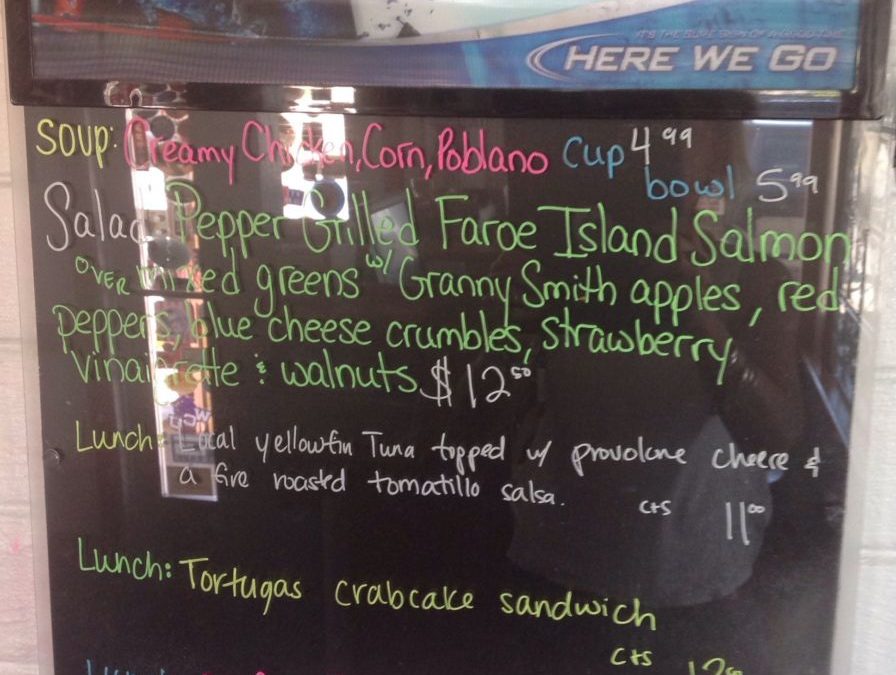 IT'S THE SURE SIGN OF A GOOD TIME
HERE WE GO
SOUP: Creamy Chicken, Corn, Poblano Cup 4 99
bowl 5 99
Salad Pepper Grilled Faroe Island Salmon
OVER mixed greens w/ Granny Smith apples, red
peppers, blue cheese crumbles, strawberry
vinaigrette & walnuts $12 50
Lunch: Local yellowfin Tuna topped w/ provolone cheese &
a fire roasted tomatillo salsa. cts 11 00
Lunch: Tortugas crabcake sandwich
cts